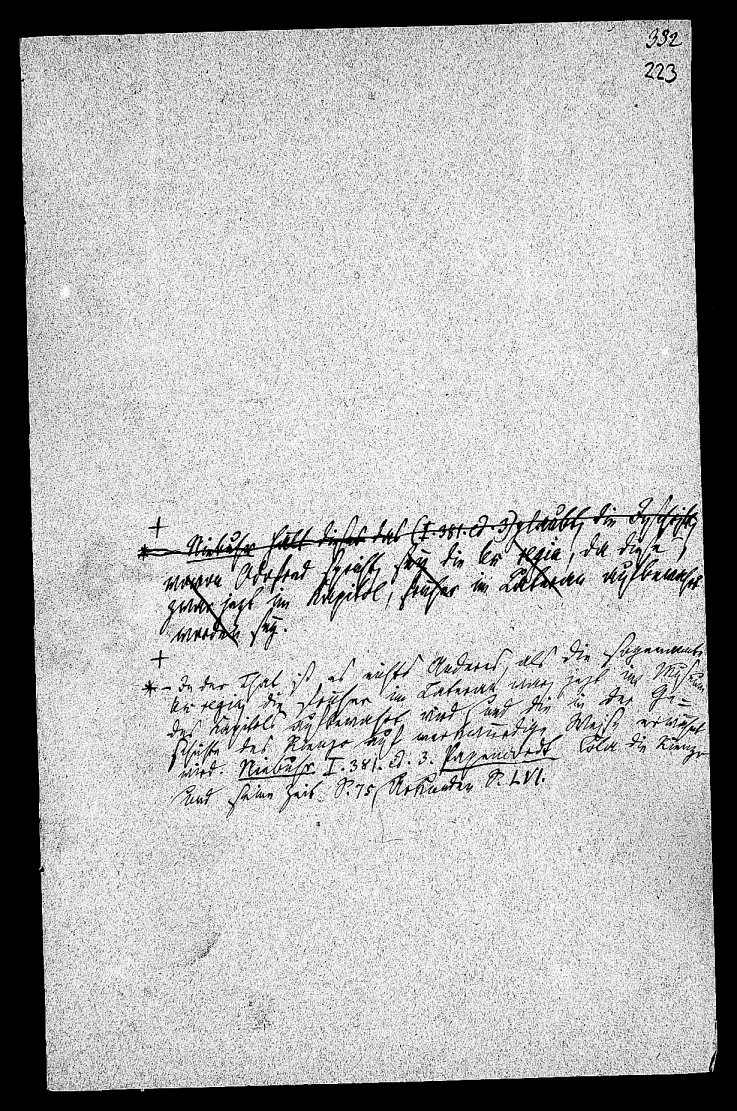 392
223
+
* – Niebuhr hält dieses das (I. 381. ed. 3) glaubt, die Inschrift,
wovon Odofred spricht, sey die lex regia, da diese
zwar jezt im Kapitol, früher im Lateran aufbewahrt
worden sey.
+
* – In der That ist es nichts Anderes, als die sogenannte
lex regia, die früher im Lateran war, jezt im Museum
des Kapitols aufbewahrt wird, und die in der Ge=
schichte des Rienzo auf merkwürdige Weise erwähnt
wird. Niebuhr I. 381. ed. 3. Papencordt Cola die Rienzo
und seine Zeit S. 75, Urkunden S. LVI.